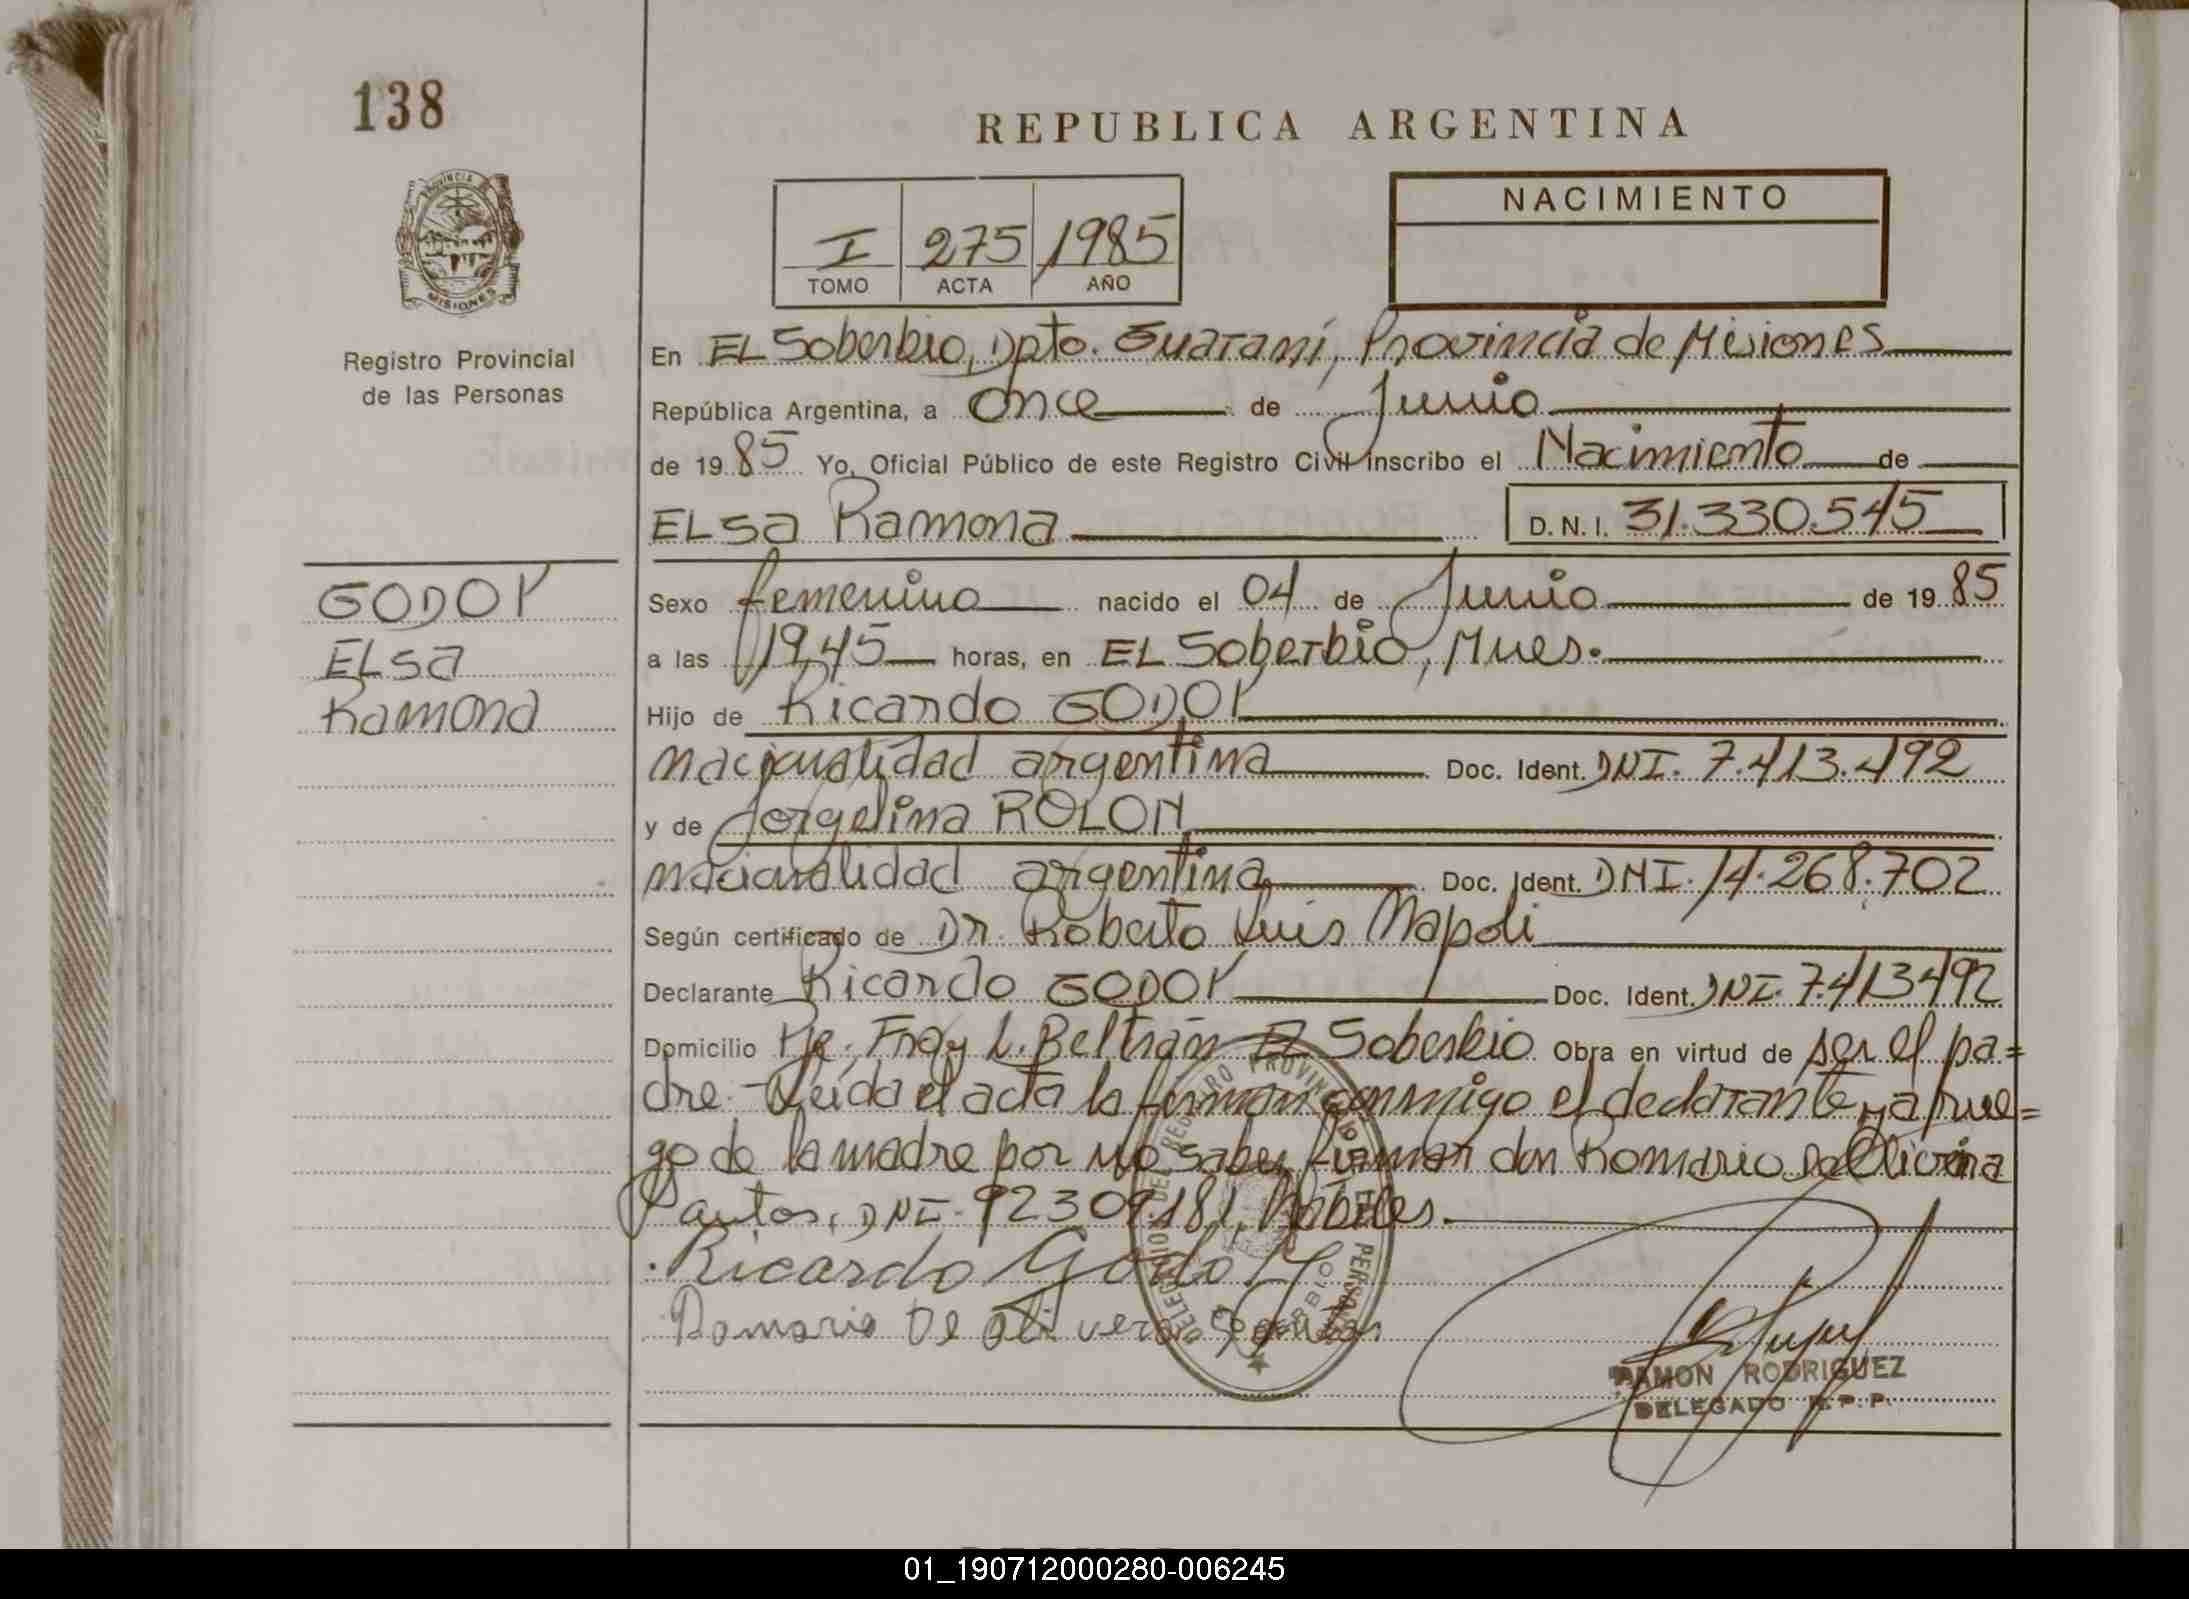 138
REPUBLICA ARGENTINA
PROVINCIA DE
MISIONES
Registro Provincial
de las Personas
I 275 1985
TOMO ACTA AÑO
NACIMIENTO
En EL Soberbio, Dpto. Guaraní, Provincia de Misiones
República Argentina, a once de Junio
de 1985 Yo, Oficial Público de este Registro Civil inscribo el Nacimiento de
ELsa Ramona D.N.I. 31.330.545
GODOY
ELsa
Ramona
Sexo femenino nacido el 04 de Junio de 1985
a las 19,45 horas, en EL Soberbio, Mnes.
Hijo de Ricardo GODOY
nacionalidad argentina Doc. Ident. DNI. 7.413.492
y de Jorgelina ROLON
nacionalidad argentina Doc. Ident. DNI. 14.268.702
Según certificado de Dr. Roberto Luis Napoli
Declarante Ricardo GODOY Doc. Ident. DNI. 7.413492
Domicilio Pje. Fray L. Beltrán EL Soberbio Obra en virtud de ser el pa=
dre.- Leída el acta la firman conmigo el declarante y a rue=
go de la madre por no saber firmar don Romario De Oliveira
Santos, DNI. 92309.181, hábiles.
Ricardo Godoy
Romario De Olivera Santos
REGISTRO PROVINCIAL
DELEGACION
RAMON RODRIGUEZ
DELEGADO R.P.P.
01_190712000280-006245